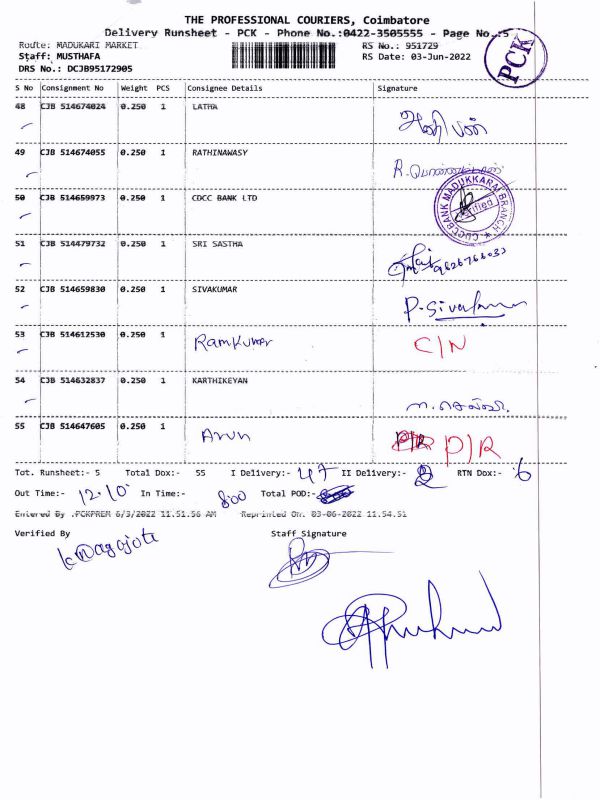 THE PROFESSIONAL COURIERS, Coimbatore
Delivery Runsheet - PCK - Phone No.:0422-3505555 - Page No.:5
Route: MADUKARI MARKET RS No.: 951729
Staff: MUSTHAFA RS Date: 03-Jun-2022
DRS No.: DCJB95172905
PCK
S No Consignment No Weight PCS Consignee Details Signature
48 CJB 514674024 0.250 1 LATHA
49 CJB 514674055 0.250 1 RATHINAWASY
50 CJB 514659973 0.250 1 CDCC BANK LTD
CDCCBANK MADUKKARAI BRANCH Verified
51 CJB 514479732 0.250 1 SRI SASTHA
52 CJB 514659830 0.250 1 SIVAKUMAR P. Sivakumar
53 CJB 514612530 0.250 1 Ramkumar C/N
54 CJB 514632837 0.250 1 KARTHIKEYAN
55 CJB 514647605 0.250 1 Arun P/R P/R
Tot. Runsheet:- 5 Total Dox:- 55 I Delivery:- 47 II Delivery:- 2 RTN Dox:- 6
Out Time:- 12.10 In Time:- 8.00 Total POD:-
Entered By .PCKPREM 6/3/2022 11.51.56 AM Reprinted On. 03-06-2022 11.54.51
Verified By Staff Signature